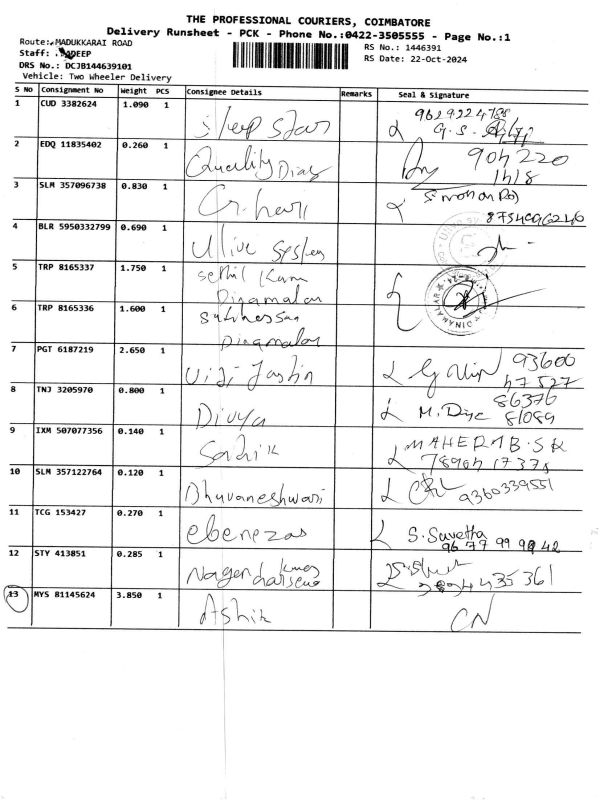 THE PROFESSIONAL COURIERS, COIMBATORE
Delivery Runsheet - PCK - Phone No.:0422-3505555 - Page No.:1
Route: MADUKKARAI ROAD
RS No.: 1446391
Staff: ADEEP
RS Date: 22-Oct-2024
DRS No.: DCJB144639101
Vehicle: Two Wheeler Delivery
S No Consignment No Weight PCS Consignee Details Remarks Seal & Signature
1 CUD 3382624 1.090 1 Sleep Star 9629224788
G.S.
2 EDQ 11835402 0.260 1 Quality Dias 904220
1418
3 SLM 357096738 0.830 1 G. hari S. mohan Raj
8754096246
4 BLR 5950332799 0.690 1 Ulive System
5 TRP 8165337 1.750 1 Dinamalar
DINAMALAR
6 TRP 8165336 1.600 1 Dinamalar
7 PGT 6187219 2.650 1 Viji Jastin 93600
47527
8 TNJ 3205970 0.800 1 Divya M. Divya 86376
81089
9 IXM 507077356 0.140 1 Sadik MAHERMB.SK
10 SLM 357122764 0.120 1 Dhuvaneshwari 9360339551
11 TCG 153427 0.270 1 ebenezas S. Suvetha
12 STY 413851 0.285 1 Nagend
13 MYS 81145624 3.850 1 Ashik CN